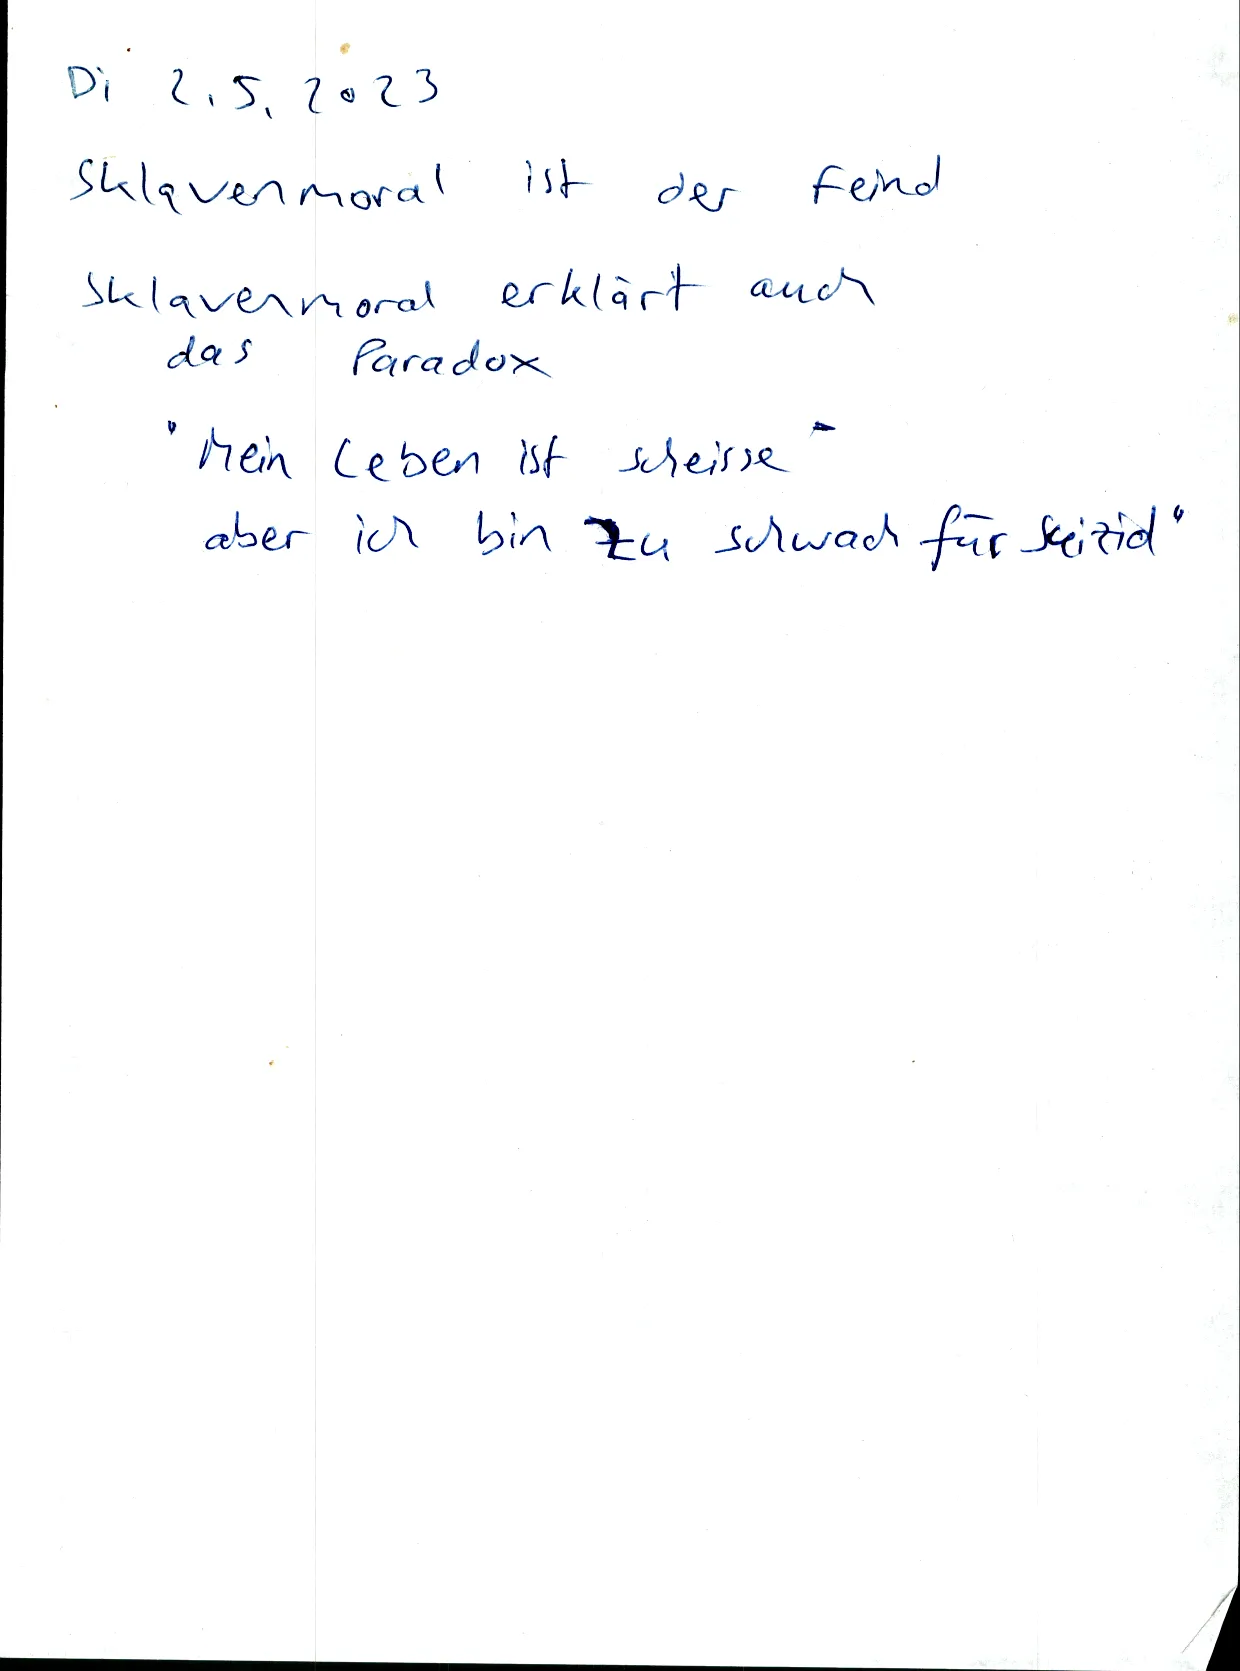 Di 2.5.2023
Sklavenmoral ist der Feind
Sklavenmoral erklärt auch
das Paradox
"Mein Leben ist scheisse"
aber ich bin zu schwach für Suizid"